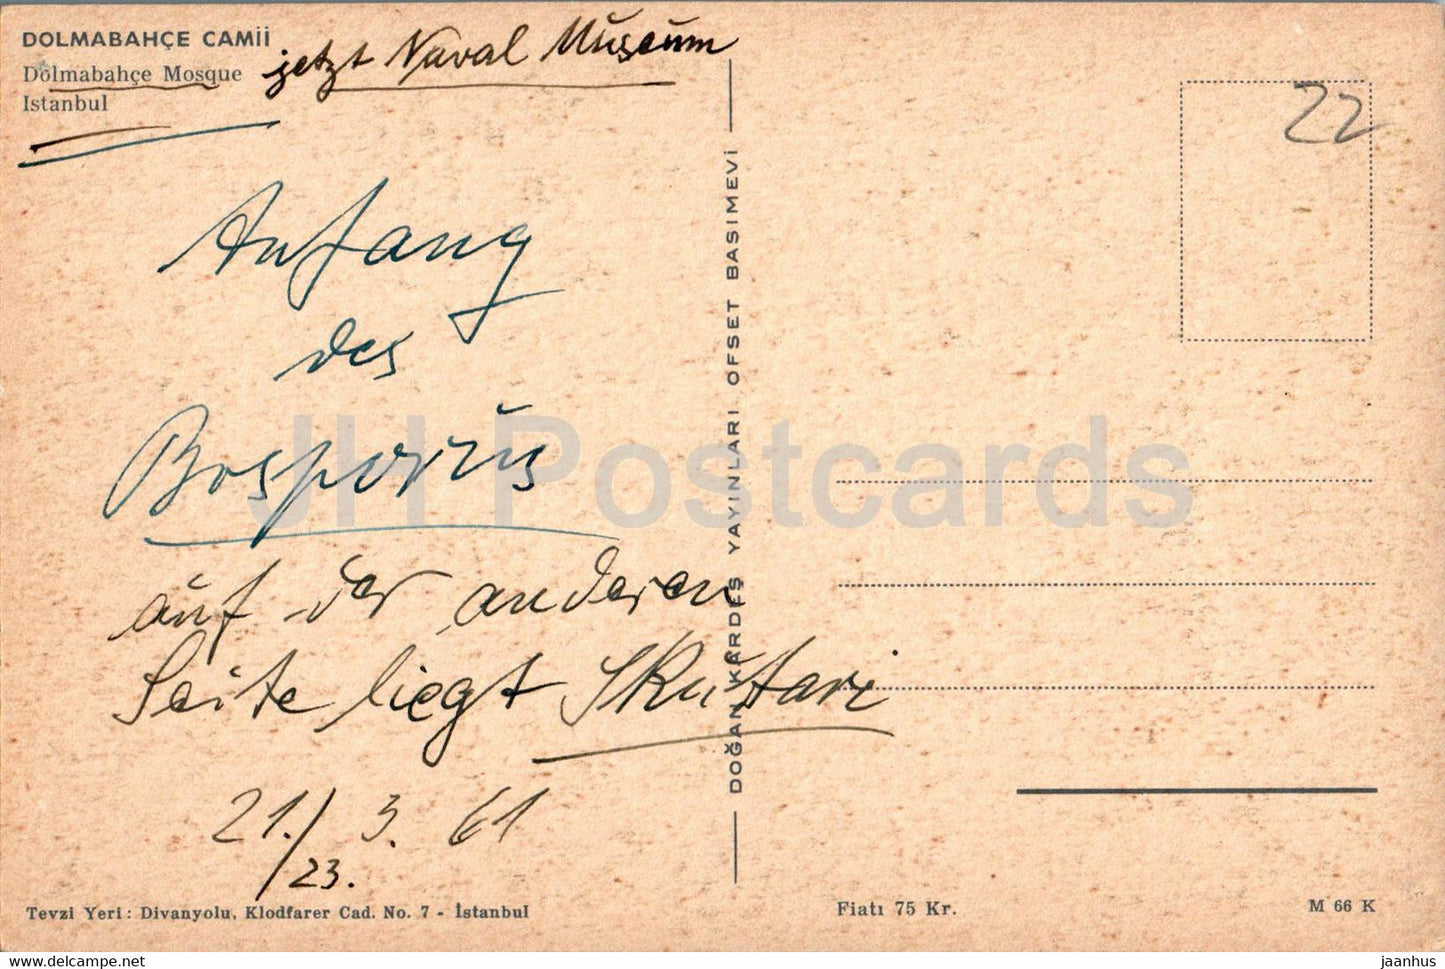 DOLMABAHÇE CAMİİ
Dolmabahçe Mosque
Istanbul
jetzt Naval Museum
22
Anfang
des
Bosporus
auf der anderen
Seite liegt Skutari
21./ 3. 61
23.
DOĞAN KARDEŞ YAYINLARI. OFSET BASIMEVİ
JH Postcards
Tevzi Yeri: Divanyolu, Klodfarer Cad. No. 7 - İstanbul
Fiatı 75 Kr.
M 66 K
hippostcard.com
jaanhus